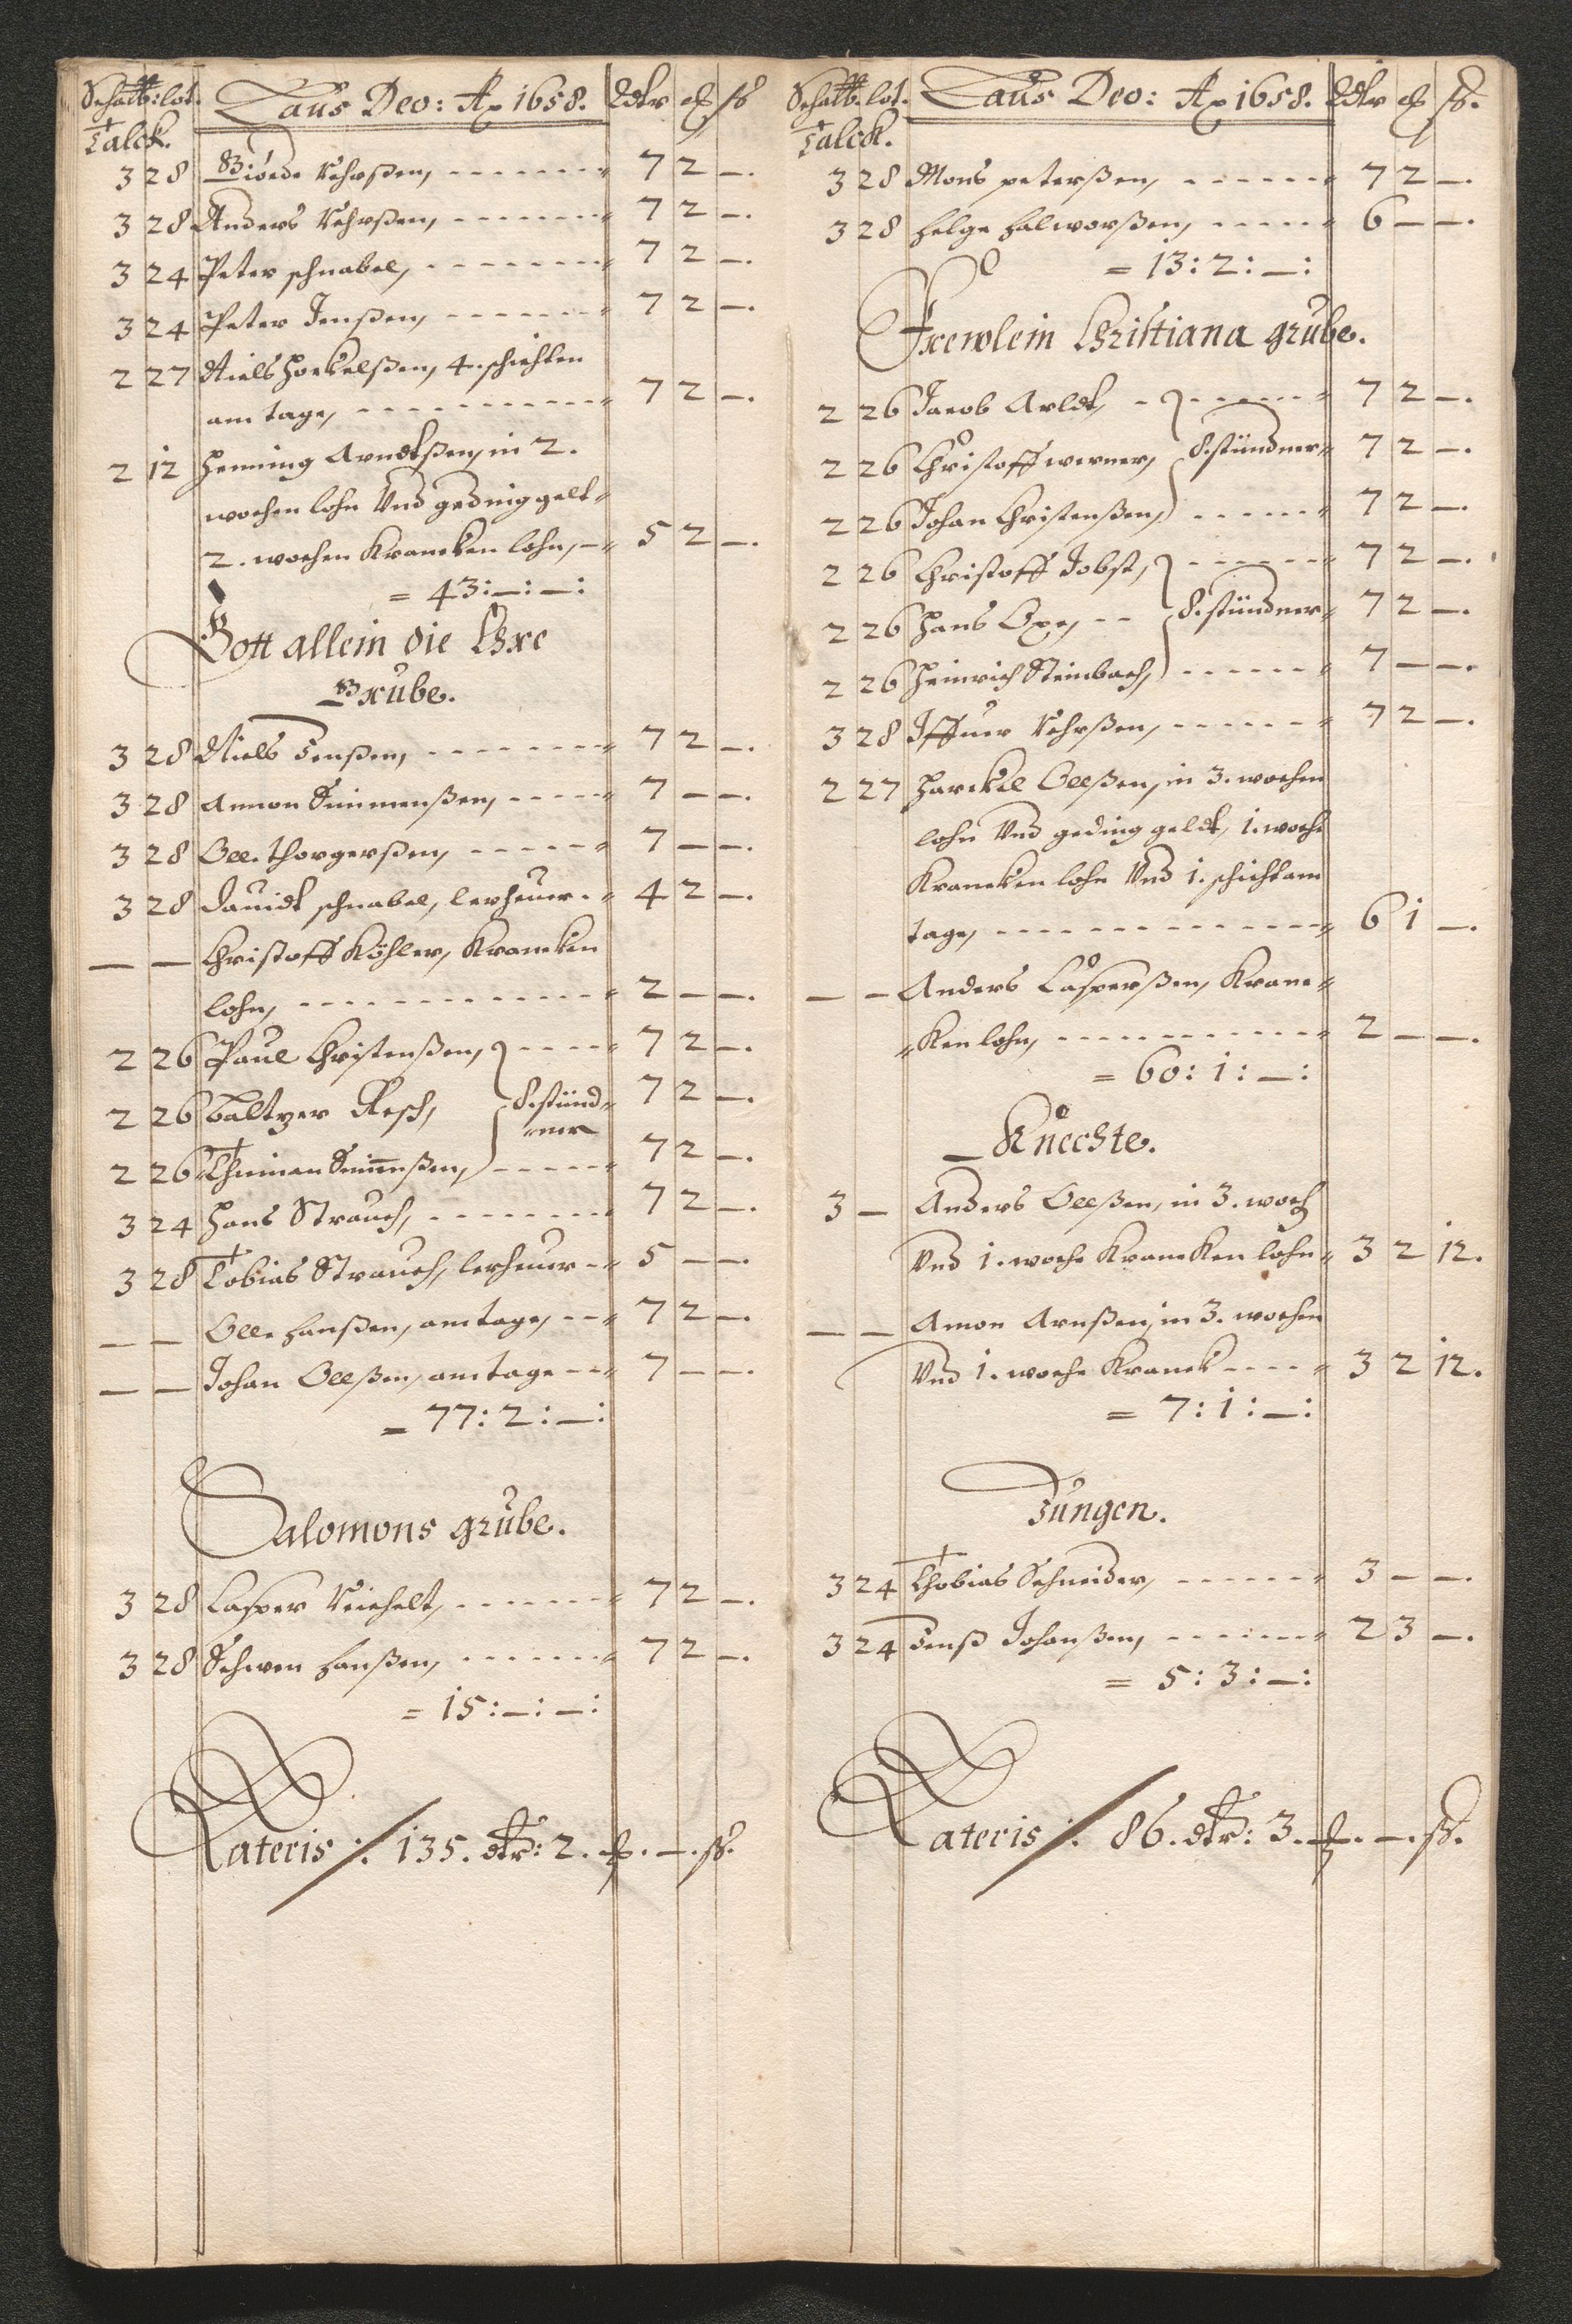 Schallt: lot. Laus Deo: Ao 1658. Rdlr ß
Talck.
3 28 Biörde Vehrßen, 7 2 —.
3 28 Anders Vehrßen, 7 2 —.
3 24 Peter schnabel, 7 2 —.
3 24 Peter Jenßen, 7 2 —.
2 27 Niels Horkelßen, 4. schichten
am tage, 7 2 —.
2 12 Henning Arndtßen, in 2.
wochen lohn Vnd geding gelt
2. wochen Krancken lohn, 5 2 —.
= 43:—:—:
Gott allein die Ehre
Grube.
3 28 Niels Jenßen, 7 2 —.
3 28 Amon Simmenßen, 7 — —.
3 28 Olle thorgerßen, 7 — —.
3 28 Dauidt schnabel, lerheuer 4 2 —.
— — Christoff Köhler, Krancken
lohn, 2 — —.
2 26 Paul Christenßen, 7 2 —.
2 26 Baltzer Resch, 8. stünd= 7 2 —.
ner
2 26 Thuiman Suinnßen, 7 2 —.
3 24 Hans Strauch, 7 2 —.
3 28 Tobias Strauch, lerheuer 5 — —.
— — Olle Hanßen, am tage, 7 2 —.
— — Johan Olleßen, am tage 7 — —.
= 77: 2: —:
Salomons grube.
3 28 Casper Reichelt, 7 2 —.
3 28 Schwen Hanßen, 7 2 —.
= 15:—:—:
Lateris ./. 135. dlr: 2. —. ß.
Schallt. lot. Laus Deo: Ao 1658. Rdlr ß.
Talck.
3 28 Mons peterßen, 7 2 —.
3 28 Helge Halworßen, 6 — —.
= 13: 2: —:
Frewlein Christiana grube.
2 26 Jacob Arldt, 7 2 —.
2 26 Christoff werner, 8. stündner 7 2 —.
2 26 Johan Christenßen, 7 2 —.
2 26 Christoff Jobst, 7 2 —.
2 26 Hans Oxe, 8. stündner 7 2 —.
2 26 Heinrich Steinbach, 7 — —.
3 28 Iffuer Vehrßen, 7 2 —.
2 27 Harckel Olleßen, in 3. wochen
lohn Vnd geding geldt, 1. woche
Krancken lohn Vnd 1. schicht am
tage, 6 1 —.
— — Anders Casperßen, Kranc=
=ken lohn, 2 — —.
= 60: 1: —:
Knechte.
3 — Anders Olleßen, in 3. woch
Vnd 1. woche Krancken lohn 3 2 12.
— — Amon Arnßen, in 3. wochen
Vnd 1. woche Kranck 3 2 12.
= 7: 1: —:
Jungen.
3 24 Thobias Schneider, 3 — —.
3 24 Jenß Johanßen, 2 3 —.
= 5: 3: —:
Lateris ./. 86. dlr: 3. —. ß.